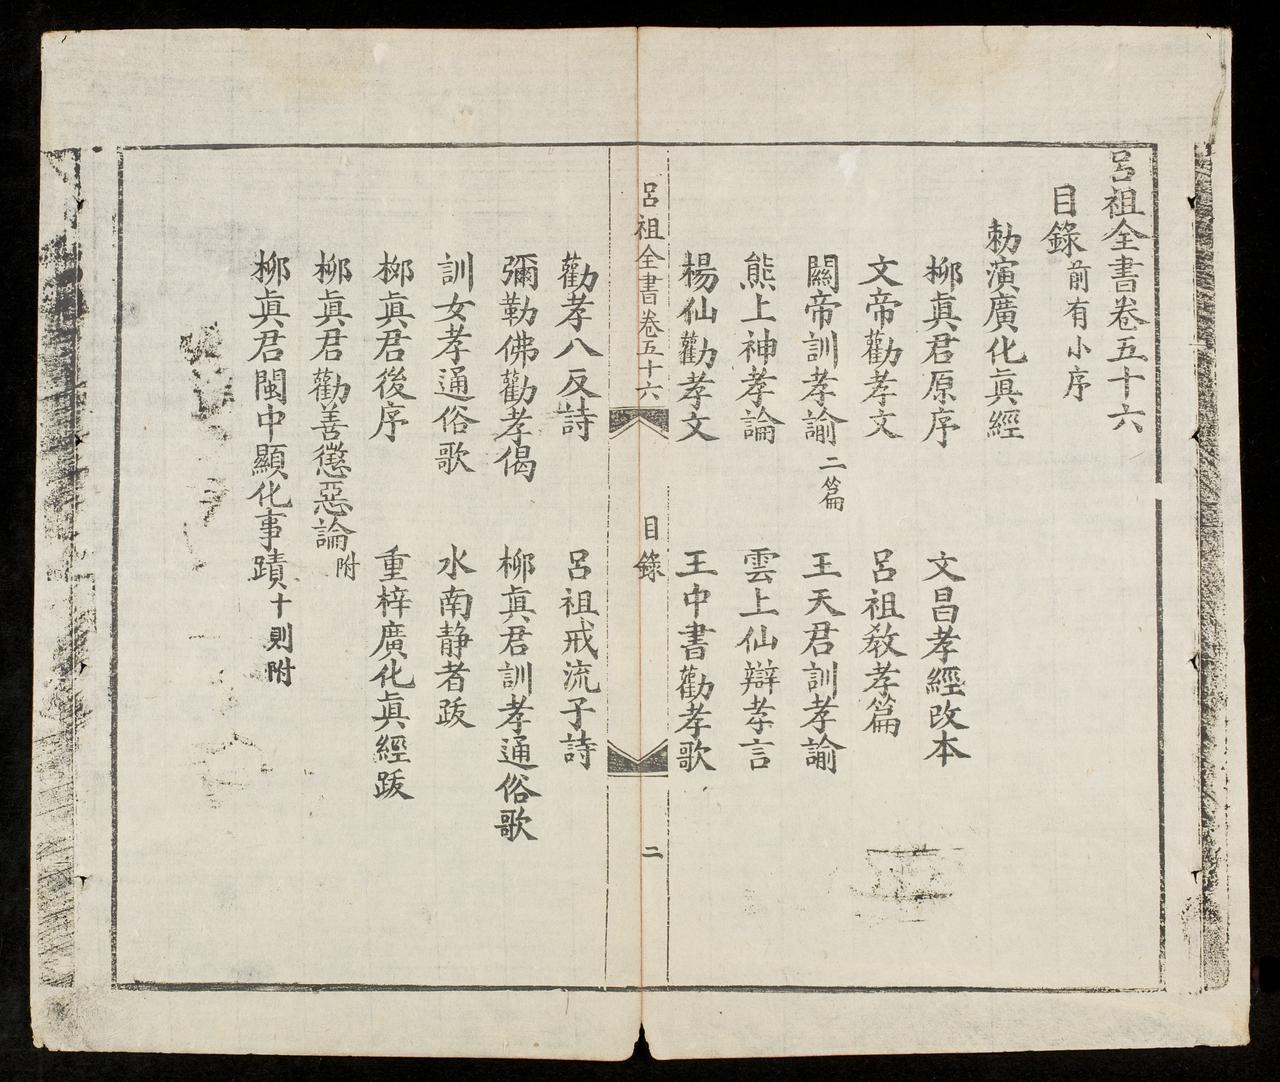 呂祖全書卷五十六
目錄前有小序
勅演廣化眞經
柳眞君原序 文昌孝經改本
文帝勸孝文 呂祖教孝篇
關帝訓孝諭二篇 王天君訓孝諭
熊上神孝論 雲上仙辯孝言
楊仙勸孝文 王中書勸孝歌
呂祖全書卷五十六 目錄 二
勸孝八反詩 呂祖戒流子詩
彌勒佛勸孝偈 柳眞君訓孝通俗歌
訓女孝通俗歌 水南靜者跋
柳眞君後序 重梓廣化眞經跋
柳眞君勸善懲惡論附
柳眞君閩中顯化事蹟十則附